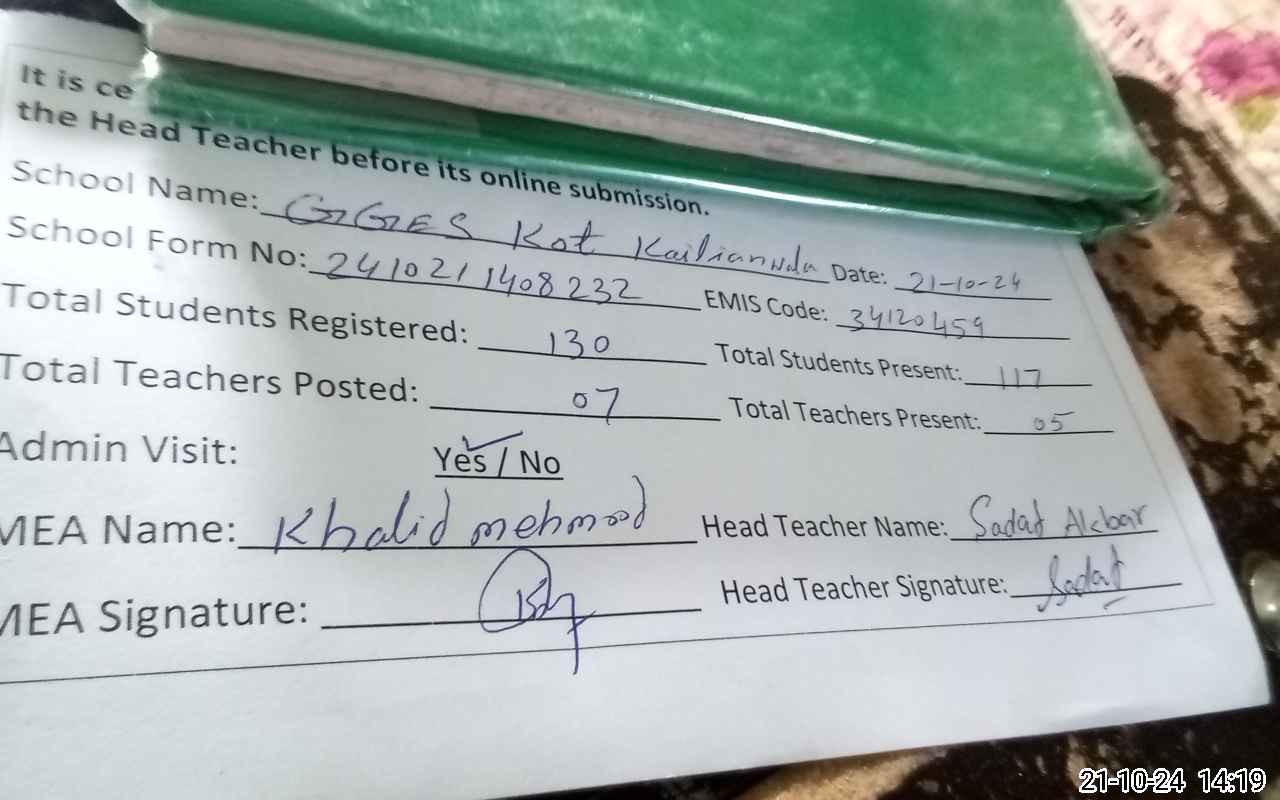 It is ce
the Head Teacher before its online submission.
School Name: GGES Kot Kailianwala Date: 21-10-24
School Form No: 2410211408232 EMIS Code: 34120459
Total Students Registered: 130 Total Students Present: 117
Total Teachers Posted: 07 Total Teachers Present: 05
Admin Visit: Yes / No
MEA Name: Khalid mehmood Head Teacher Name: Sadat Akbar
MEA Signature: Head Teacher Signature: Sadat
21-10-24 14:19